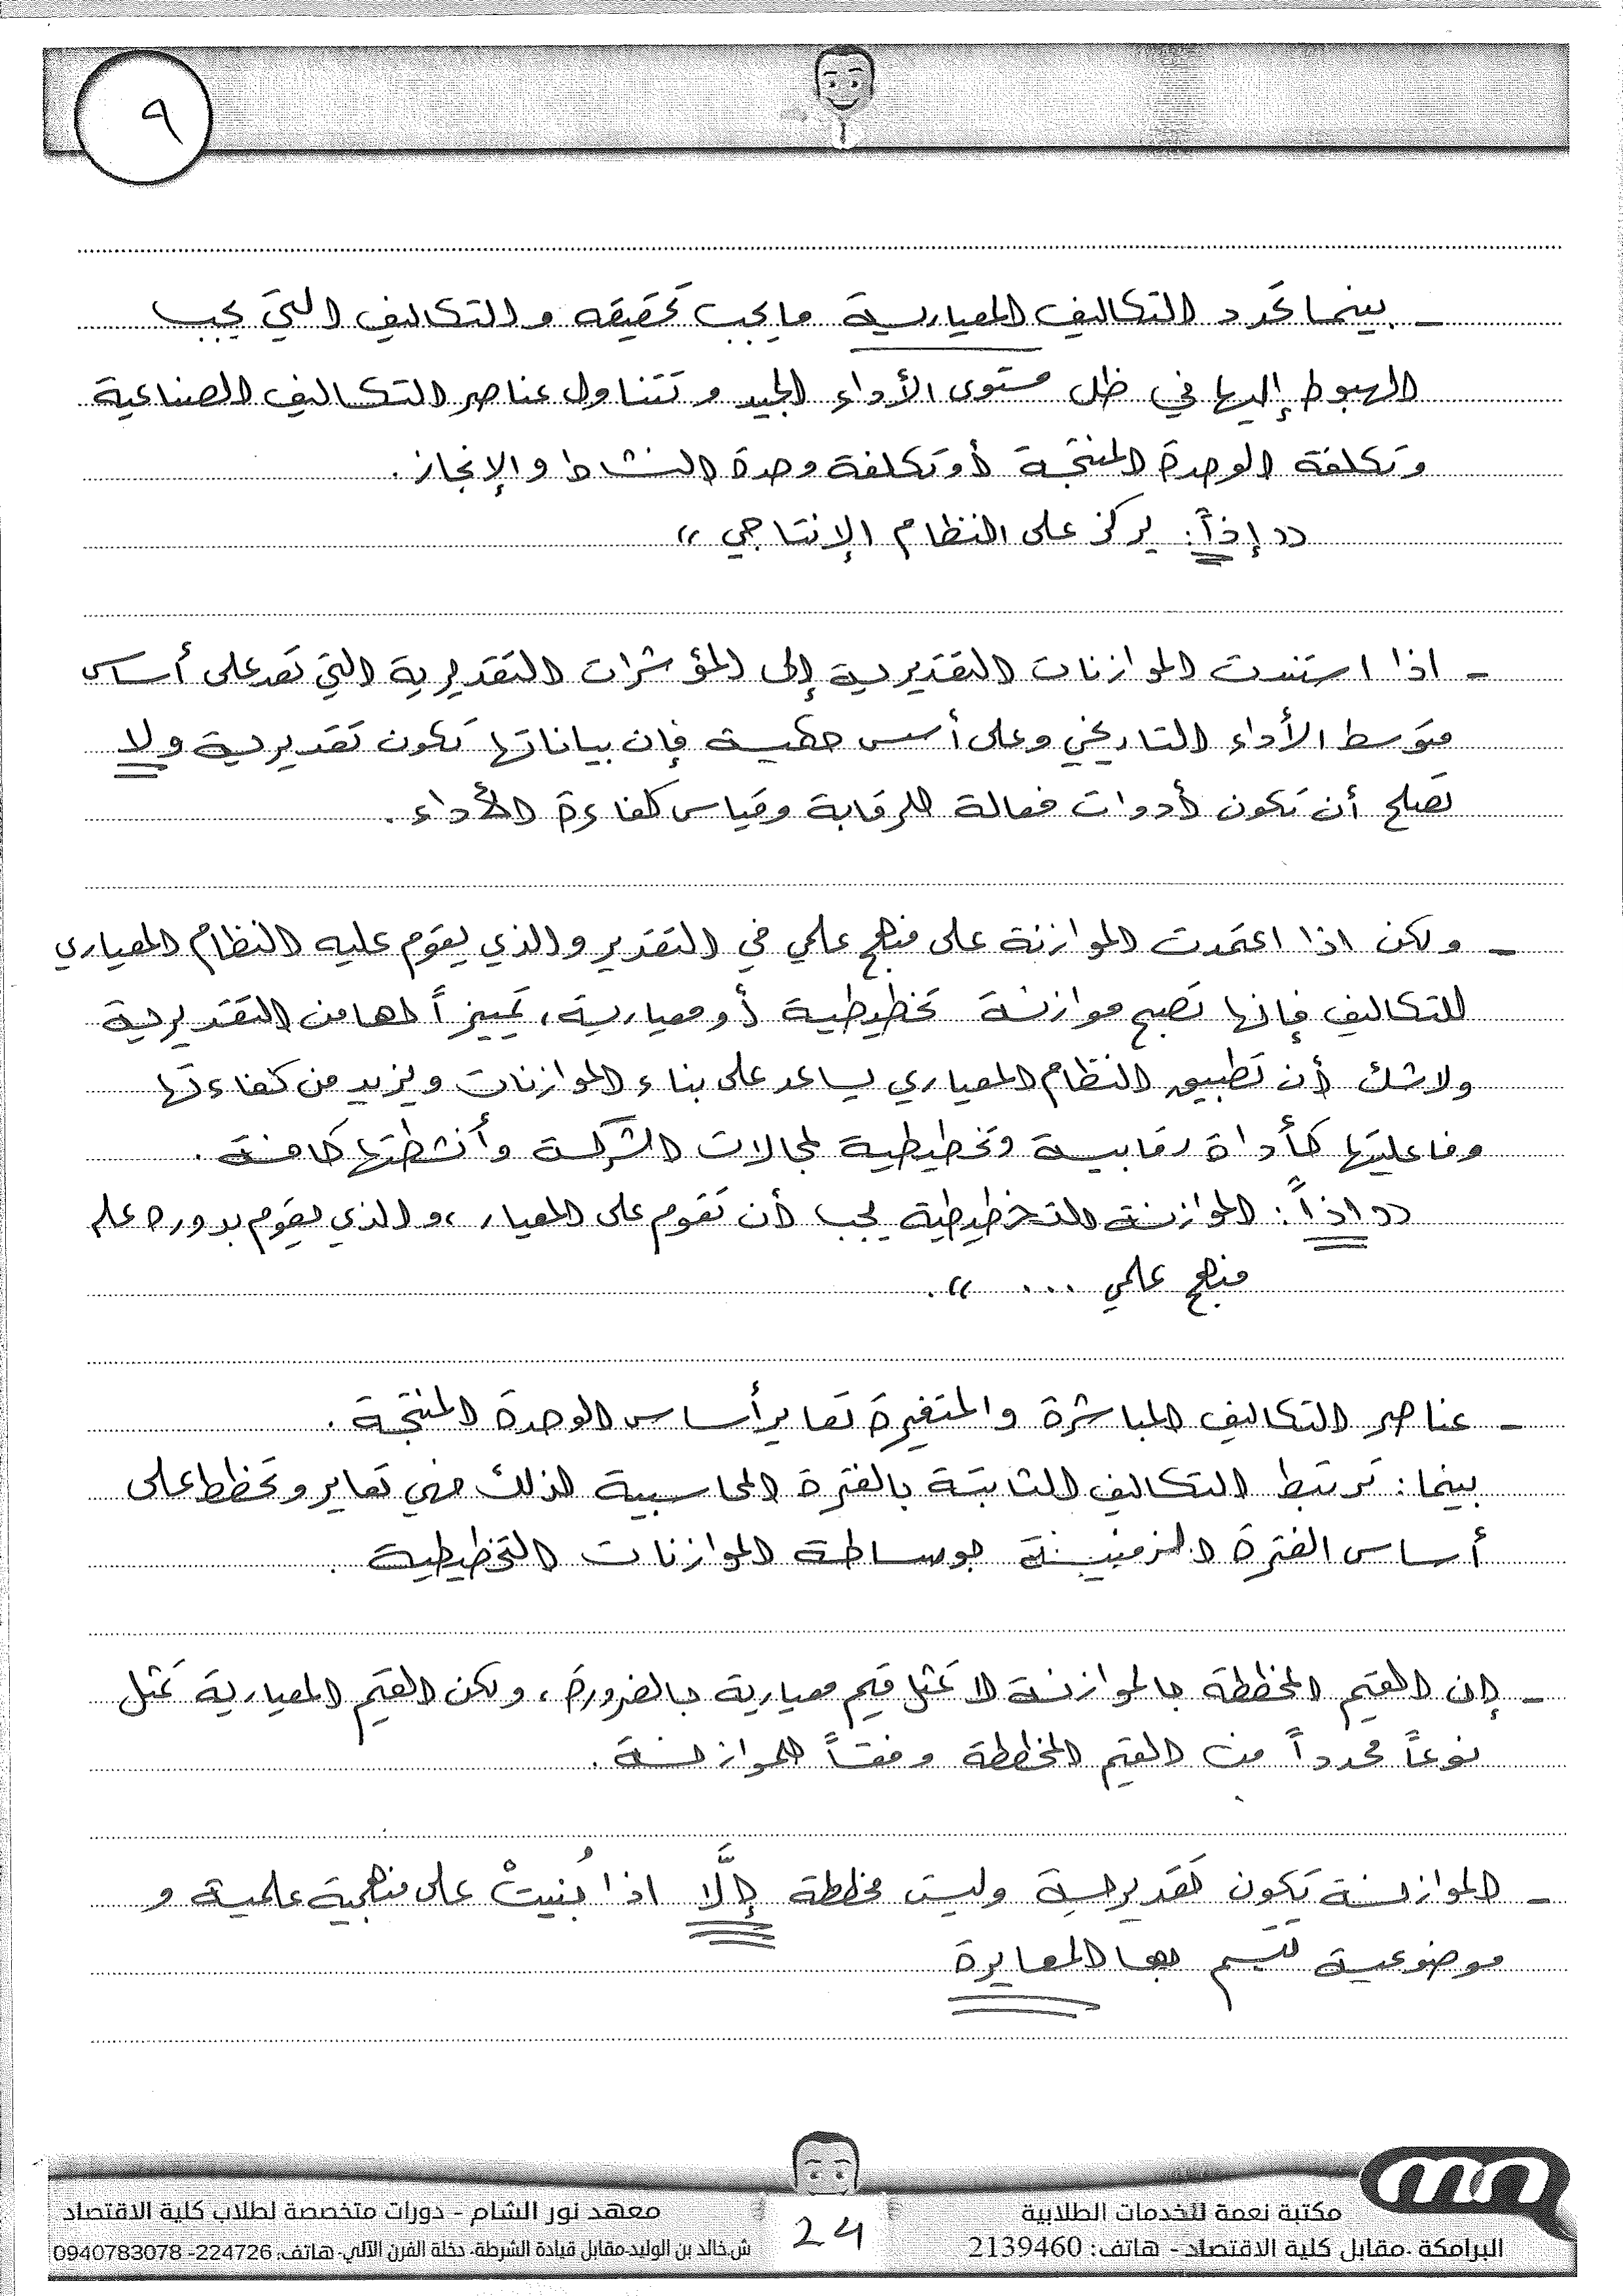 ٩
- بينما تحدد التكاليف المعيارية ما يجب تحقيقه و التكاليف التي يجب
الهبوط إليها في ظل مستوى الأداء الجيد و تتناول عناصر التكاليف الصناعية
وتكلفة الوحدة المنتجة أو تكلفة وحدة النشاط والإنجاز .
(( إذاً : يركز على النظام الإنتاجي ))
- اذا استندت الموازنات التقديرية إلى المؤشرات التقديرية التي تعد على أساس
متوسط الأداء التاريخي وعلى أسس حكمية فإن بياناتها تكون تقديرية ولا
تصلح أن تكون أدوات فعالة للرقابة وقياس كفاءة الأداء .
- ولكن اذا اعتمدت الموازنة على منهج علمي في التقدير والذي يقوم عليه النظام المعياري
للتكاليف فإنها تصبح موازنة تخطيطية أو معيارية ، تمييزاً لها من التقديرية
ولا شك أن تطبيق النظام المعياري يساعد على بناء الموازنات ويزيد من كفاءتها
وفاعليتها كأداة رقابية وتخطيطية لمجالات الشركة وأنشطتها كافة .
(( اذاً : الموازنة التخطيطية يجب أن تقوم على المعيار ، والذي يقوم بدوره على
منهج علمي ... )) .
- عناصر التكاليف المباشرة والمتغيرة تعاير أساس الوحدة المنتجة .
بينما : ترتبط التكاليف الثابتة بالفترة المحاسبية لذلك فهي تعاير وتخطط على
أساس الفترة الزمنية بوساطة الموازنات التخطيطية .
- إن القيم المخططة بالموازنة لا تمثل قيم معيارية بالضرورة ، ولكن القيم المعيارية تمثل
نوعاً محدداً من القيم المخططة وفقاً للموازنة .
- الموازنة تكون تقديرية وليست مخططة إلَّا اذا بُنيتْ على منهجية علمية و
موضوعية تتسم بها المعايرة
مكتبة نعمة للخدمات الطلابية
البرامكة -مقابل كلية الاقتصاد - هاتف: 2139460
24
معهد نور الشام - دورات متخصصة لطلاب كلية الاقتصاد
ش.خالد بن الوليد-مقابل قيادة الشرطة- دخلة الفرن الآلي- هاتف: 224726- 0940783078